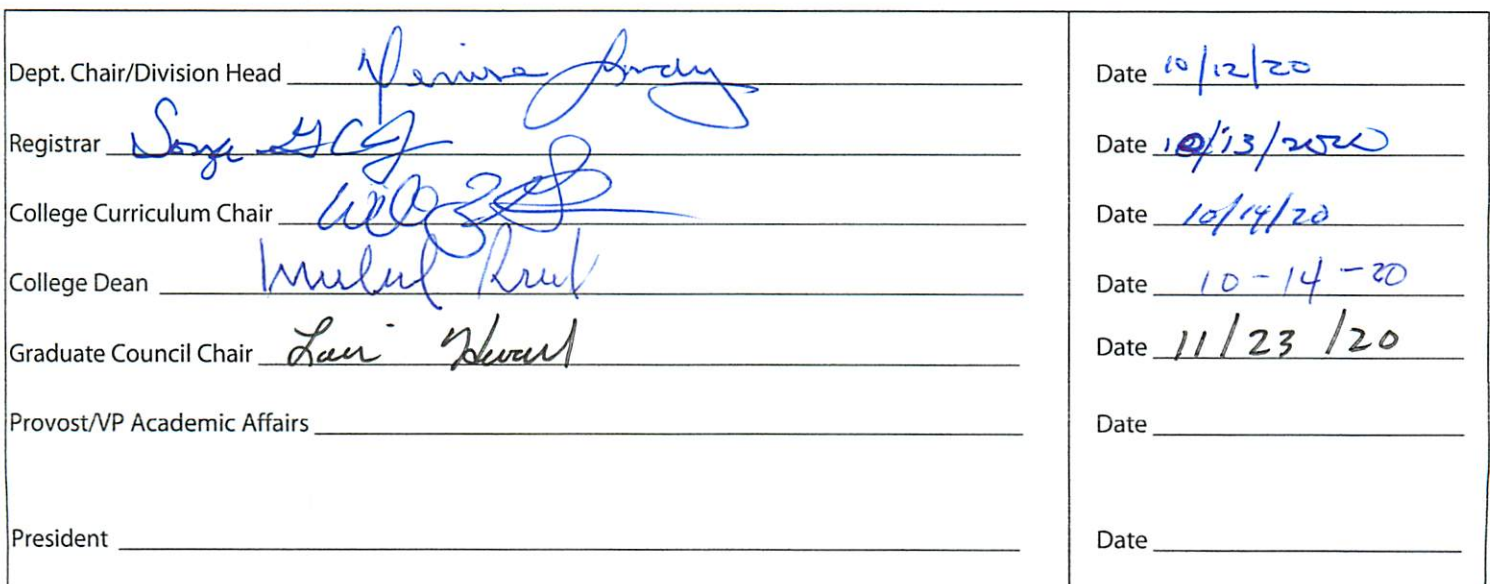 Dept. Chair/Division Head Date 10/12/20
Registrar Date 10/13/2020
College Curriculum Chair Date 10/14/20
College Dean Date 10-14-20
Graduate Council Chair Lori Date 11/23/20
Provost/VP Academic Affairs Date
President Date